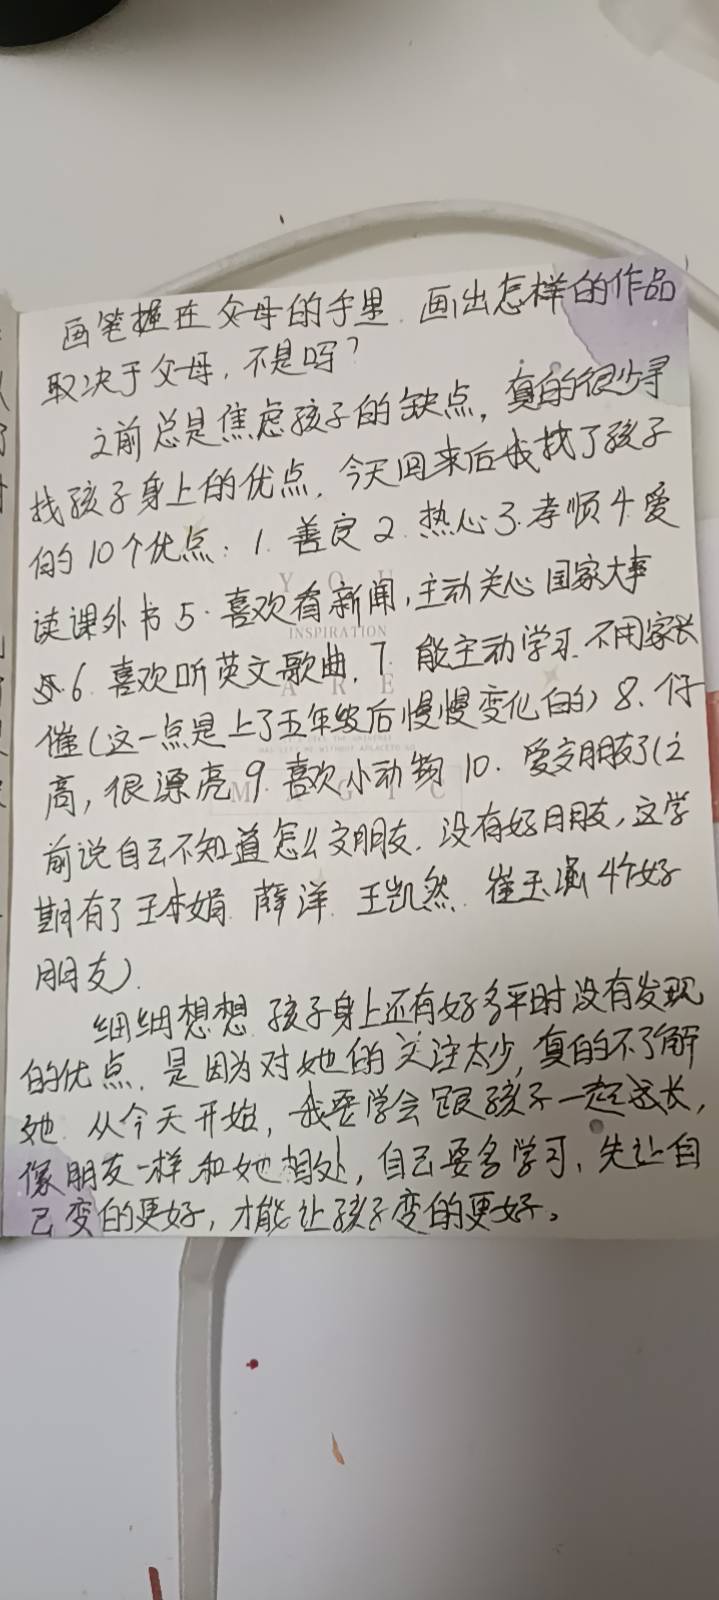 画笔握在父母的手里.画出怎样的作品
取决于父母,不是吗?
之前总是焦虑孩子的缺点,真的很少寻
找孩子身上的优点.今天回来后我找了孩子
的10个优点:1.善良2.热心3.孝顺4.爱
读课外书5.喜欢看新闻,主动关心国家大事
6.喜欢听英文歌曲.7.能主动学习.不用家长
催(这一点是上了五年级后慢慢变化的)8.个
高,很漂亮9.喜欢小动物10.爱交朋友了(之
前说自己不知道怎么交朋友.没有好朋友,这学
期有了王本娟.薛洋.王凯然.崔玉涵4个好
朋友).
细细想想.孩子身上还有好多平时没有发现
的优点.是因为对她的关注太少,真的不了解
她.从今天开始,我要学会跟孩子一起成长,
像朋友一样和她相处,自己要多学习、先让自
己变的更好,才能让孩子变的更好。
YOU
INSPIRATION
ARE
MAGIC